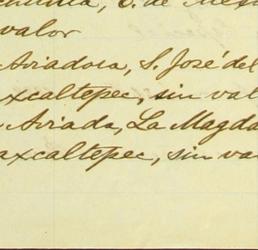 S. de Mes
valor
Aviadora, S. José del
axcaltepec, sin val
Aviada, La Magda
axcaltepec, sin va